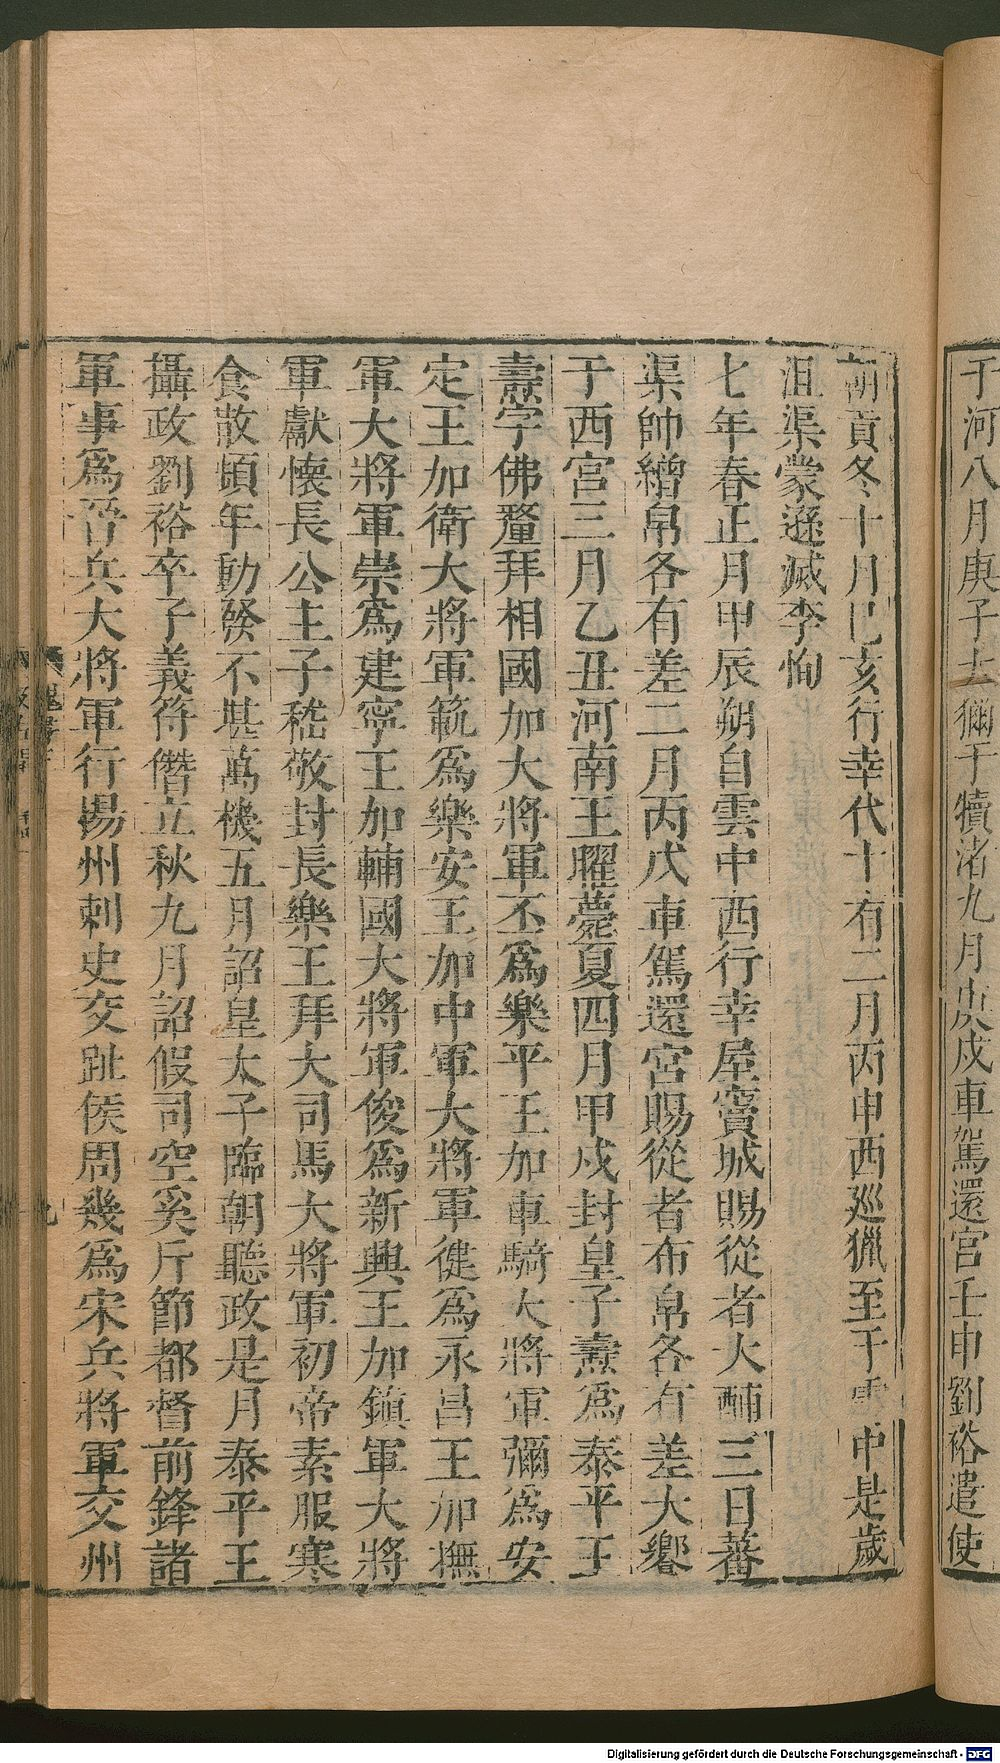 于河八月庚子大獮于犢渚九月庚戌車駕還宮壬申劉裕遣使
朝貢冬十月己亥行幸代十有二月丙申西巡獵至于雲中是歲
沮渠蒙遜滅李恂
七年春正月甲辰朔自雲中西行幸屋竇城賜從者大酺三日蕃
渠帥繒帛各有差二月丙戌車駕還宮賜從者布帛各有差大饗
于西宮三月乙丑河南王曜薨夏四月甲戌封皇子燾為泰平王
燾字佛釐拜相國加大將軍丕爲樂平王加車騎大將軍彌爲安
定王加衛大將軍範爲樂安王加中軍大將軍健爲永昌王加撫
軍大將軍崇爲建寧王加輔國大將軍俊爲新興王加鎮軍大將
軍獻懷長公主子嵇敬封長樂王拜大司馬大將軍初帝素服寒
食散頻年動發不堪萬機五月詔皇太子臨朝聽政是月泰平王
攝政劉裕卒子義符僭立秋九月詔假司空奚斤節都督前鋒諸
軍事爲晉兵大將軍行揚州刺史交趾侯周幾爲宋兵將軍交州
九
Digitalisierung gefördert durch die Deutsche Forschungsgemeinschaft - DFG